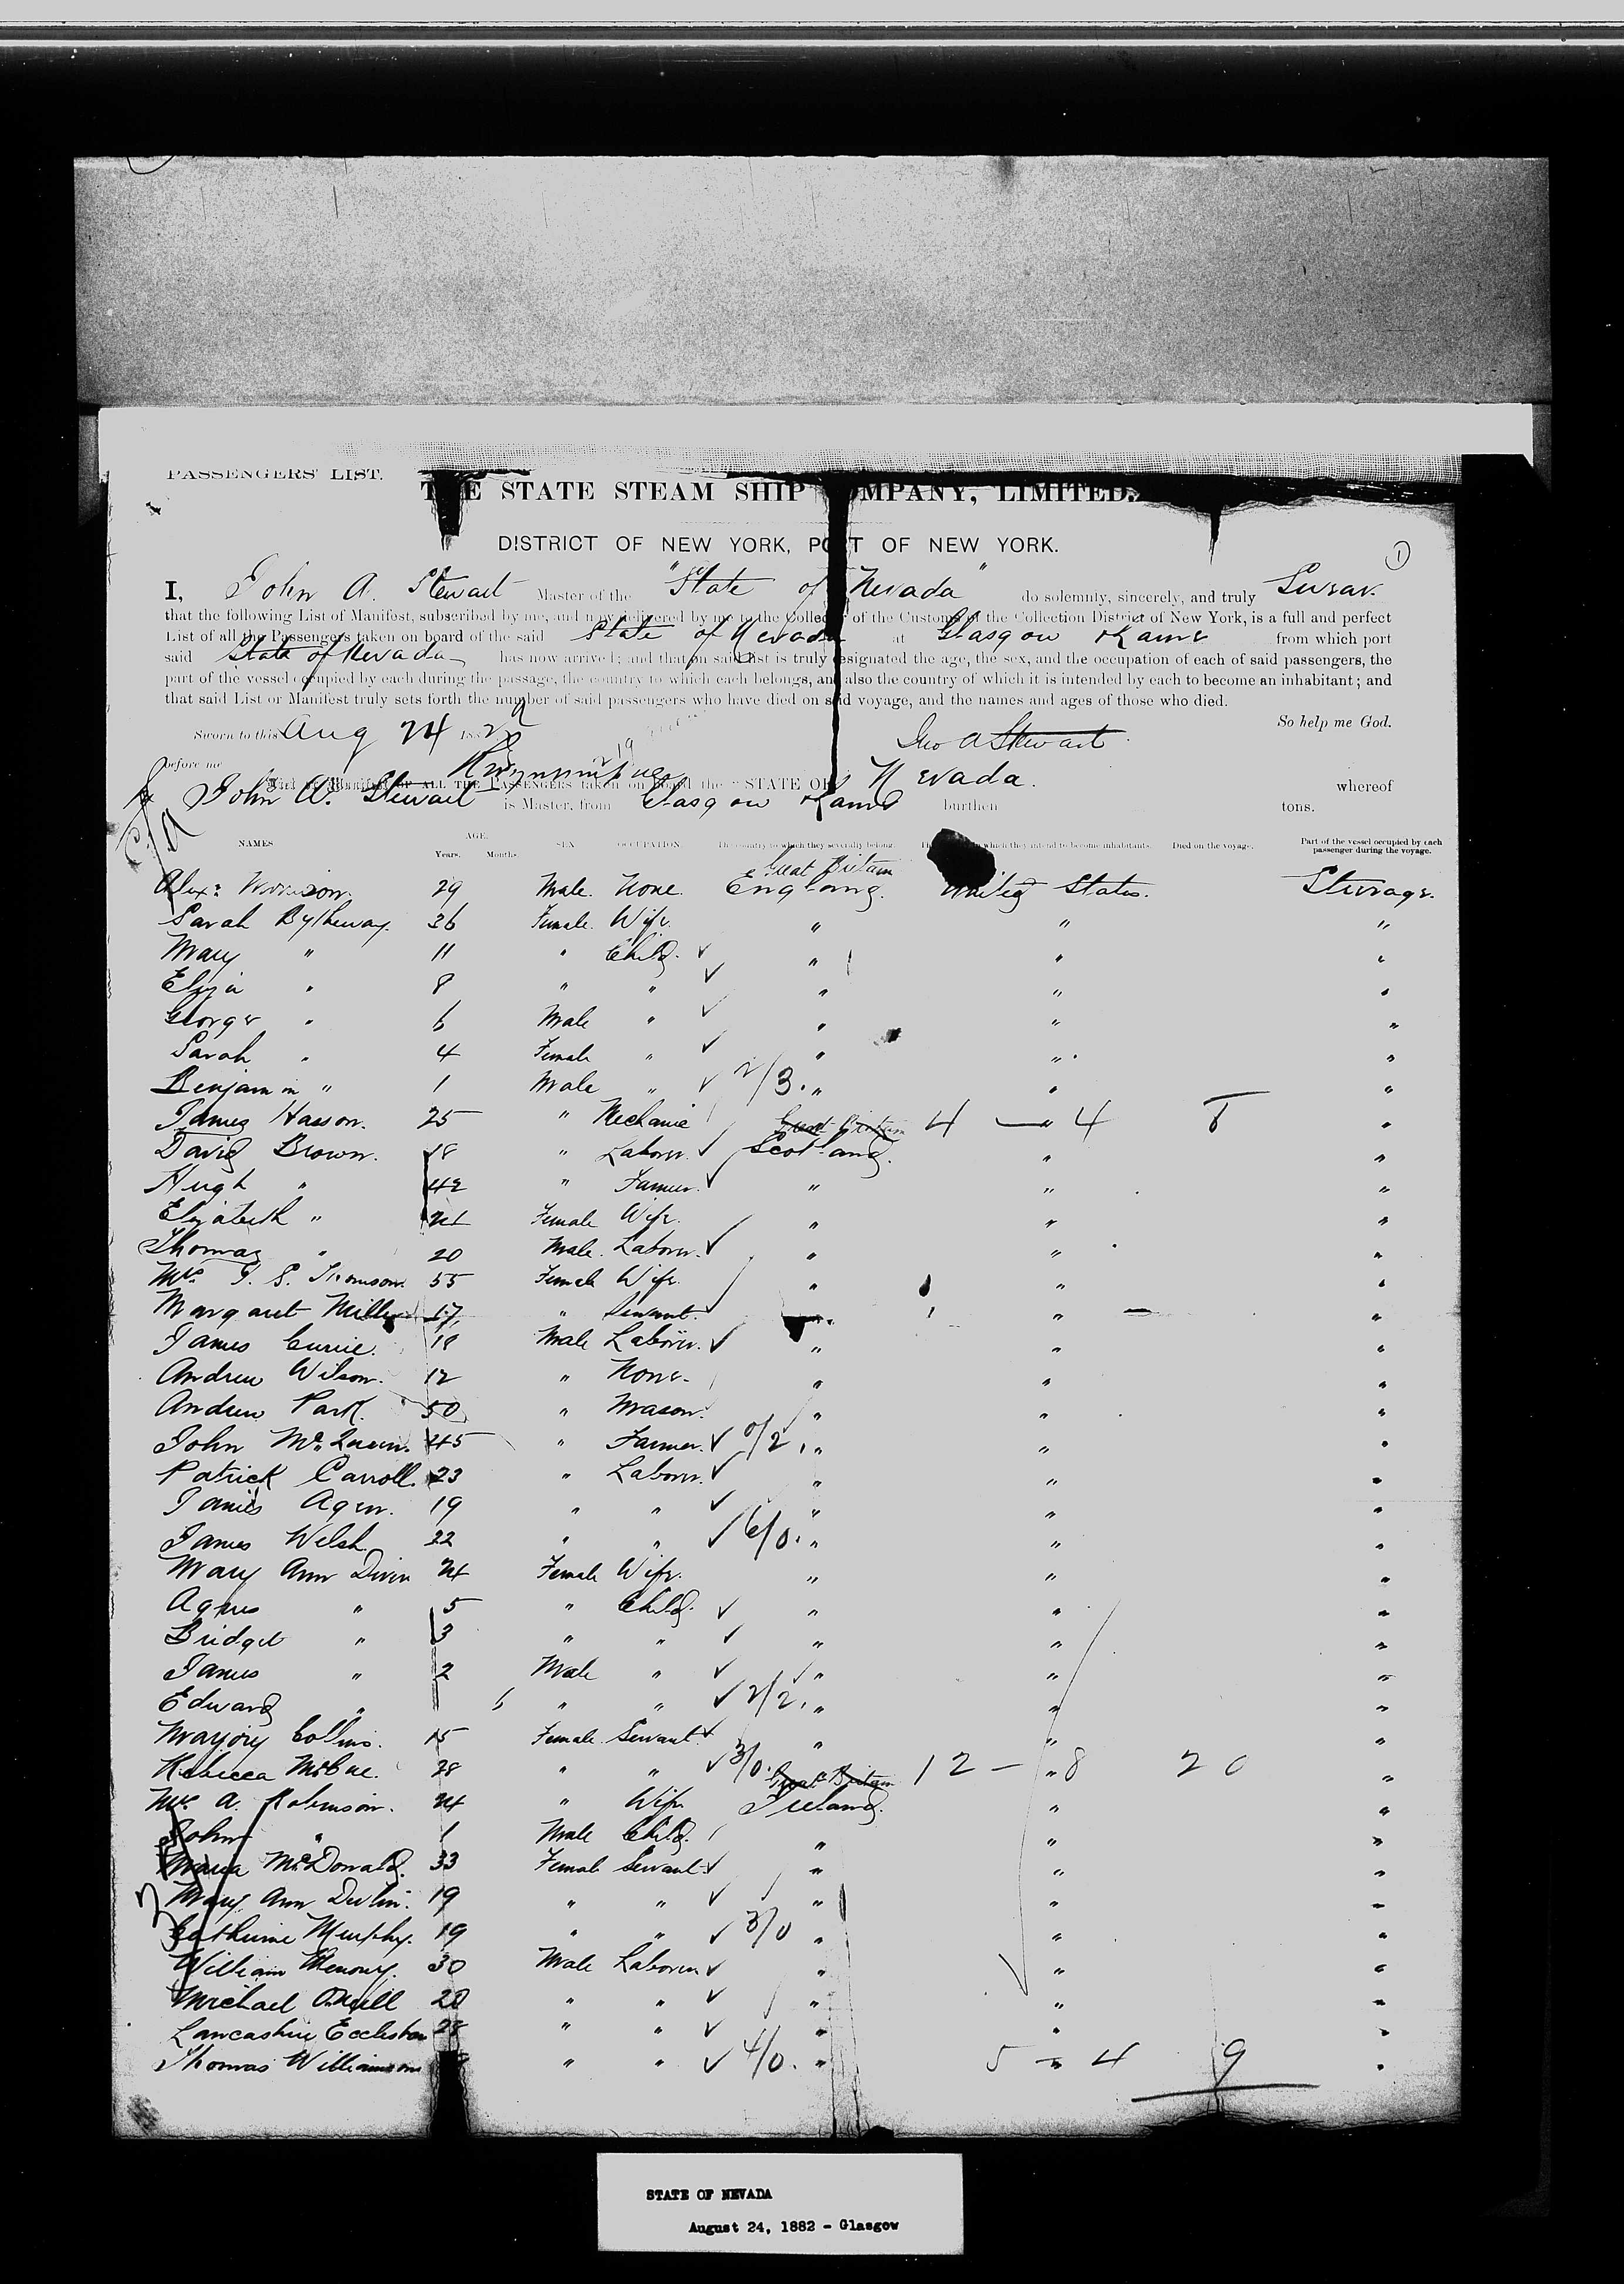 PASSENGERS' LIST.
THE STATE STEAM SHIP COMPANY, LIMITED.
DISTRICT OF NEW YORK, PORT OF NEW YORK.
1
I, John A. Stewart Master of the "State of Nevada" do solemnly, sincerely, and truly Swear
that the following List of Manifest, subscribed by me, and now delivered by me to the Collector of the Customs of the Collection District of New York, is a full and perfect
List of all the Passengers taken on board of the said State of Nevada at Glasgow & Larne from which port
said State of Nevada has now arrived; and that on said List is truly designated the age, the sex, and the occupation of each of said passengers, the
part of the vessel occupied by each during the passage, the country to which each belongs, and also the country of which it is intended by each to become an inhabitant; and
that said List or Manifest truly sets forth the number of said passengers who have died on said voyage, and the names and ages of those who died.
So help me God.
Sworn to this Aug 24 1882 Jno A Stewart
before me
List or Manifest OF ALL THE PASSENGERS taken on board the "STATE OF Nevada. whereof
John A. Stewart is Master, from Glasgow & Larne burthen tons.
NAMES AGE. Years. Months. SEX OCCUPATION. The country to which they severally belong. which they intend to become inhabitants. Died on the voyage. Part of the vessel occupied by each passenger during the voyage.
Great Britain
Alexr Morrison. 29 Male. None England. United States. Steerage.
Sarah Bytheway. 36 Female. Wife. " " "
Mary " 11 " Child. " " "
Eliza " 8 " " " " "
George " 6 Male " " " "
Sarah " 4 Female " " " "
Benjamin " 1 Male " 2/3. " " "
James Hasson. 25 " Mechanic Great Britain 4 — " 4 8 "
David Brown. 18 " Laborer. Scotland. " "
Hugh " 42 " Farmer. " " "
Elizabeth " 24 Female Wife. " " "
Thomas " 20 Male. Laborer. " " "
Mrs. J. S. Thomson. 55 Female Wife. " " "
Margaret Miller 17 " Servant. " " "
James Currie. 18 Male Laborer. " " "
Andrew Wilson. 12 " None. " " "
Andrew Park. 50 " Mason. " " "
John McQueen. 45 " Farmer. 0/2. " " "
Patrick Carroll. 23 " Laborer. " " "
James Agen. 19 " " " " "
James Welsh 22 " " 6/0. " " "
Mary Ann Divin 24 Female Wife. " " "
Agnes " 5 " Child. " " "
Bridget " 3 " " " " "
James " 2 Male " " " "
Edward " 6 " " 2/2. " " "
Marjory Collins. 15 Female. Servant " " "
Rebecca McCue. 28 " " 3/0. Great Britain 12 — " 8 20 "
Mrs. A. Robinson. 24 " Wife Ireland. " "
John " 1 Male Child. " " "
Maria McDonald. 33 Female Servant " " "
Mary Ann Devlin. 19 " " " " "
Catherine Murphy. 19 " " 3/0 " " "
William 30 Male Laborer " " "
Michael O'Neill 20 " " " " "
Lancashire Eccleston 28 " " " " "
Thomas Williamson " " 4/0. " 5 — " 4 9 "
STATE OF NEVADA
August 24, 1882 - Glasgow